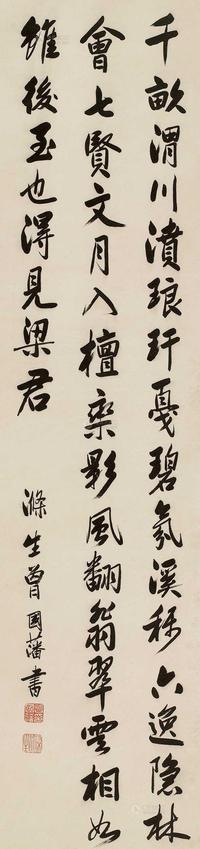 千畝渭川濆琅玕戛碧氛溪稱六逸隐林
會七賢文月入檀欒影風翻翁翠雲相如
雖後至也得見梁君
滌生曾國藩書